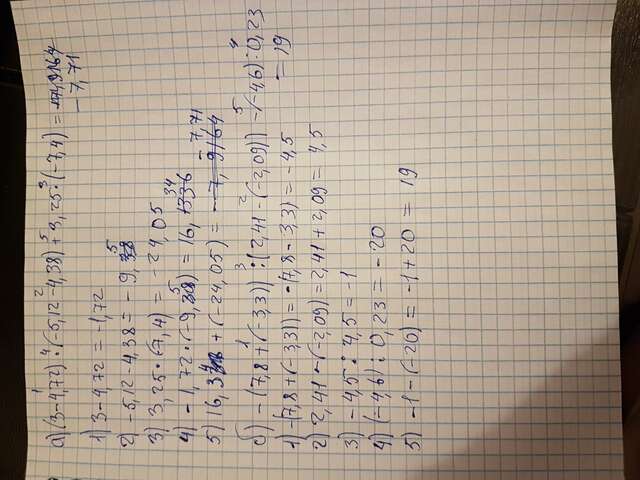 а) (3-4,72) · (-5,12-4,38) + 3,25 · (-7,4) =
-7,71
1) 3-4,72 = -1,72
2) -5,12-4,38 = -9,5
3) 3,25 · (-7,4) = -24,05
4) -1,72 · (-9,5) = 16,34
5) 16,34 + (-24,05) = -7,71
б) -(7,8+(-3,3)) : (2,41-(-2,09)) -(-4,6) : 0,23
= 19
1) -(7,8+(-3,3)) = -(7,8-3,3) = -4,5
2) 2,41-(-2,09) = 2,41+2,09 = 4,5
3) -4,5 : 4,5 = -1
4) (-4,6) : 0,23 = -20
5) -1-(-20) = -1+20 = 19